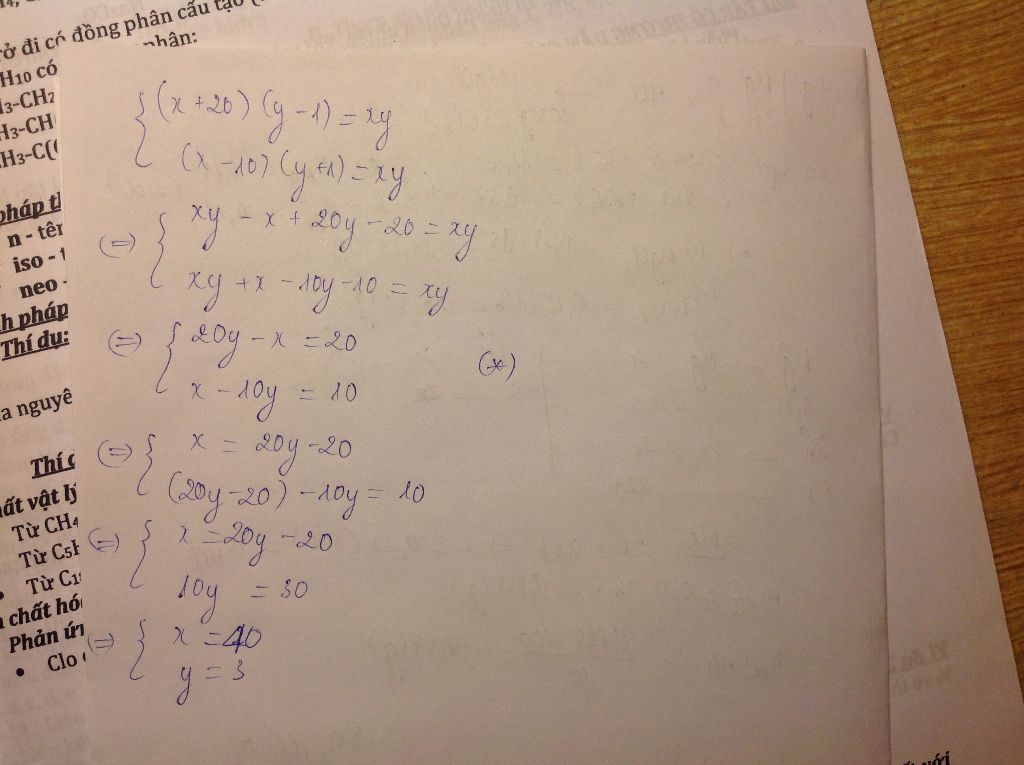 ở đi có đồng phân cấu tạo (
phân:
H10 có
H3-CH2
H3-CH(
H3-C((
pháp th
n - tên
iso - t
neo -
h pháp
Thí dụ:
a nguyê
Thí d
hất vật lý
Từ CH4
Từ C5H
• Từ C1
chất hóa
Phản ứn
• Clo
{ (x+20)(y-1)=xy
(x-10)(y+1)=xy
(=) { xy - x + 20y - 20 = xy
xy + x - 10y - 10 = xy
(=) { 20y - x = 20
(*)
x - 10y = 10
(=) { x = 20y - 20
(20y-20) - 10y = 10
(=) { x = 20y - 20
10y = 30
(=) { x = 40
y = 3
với